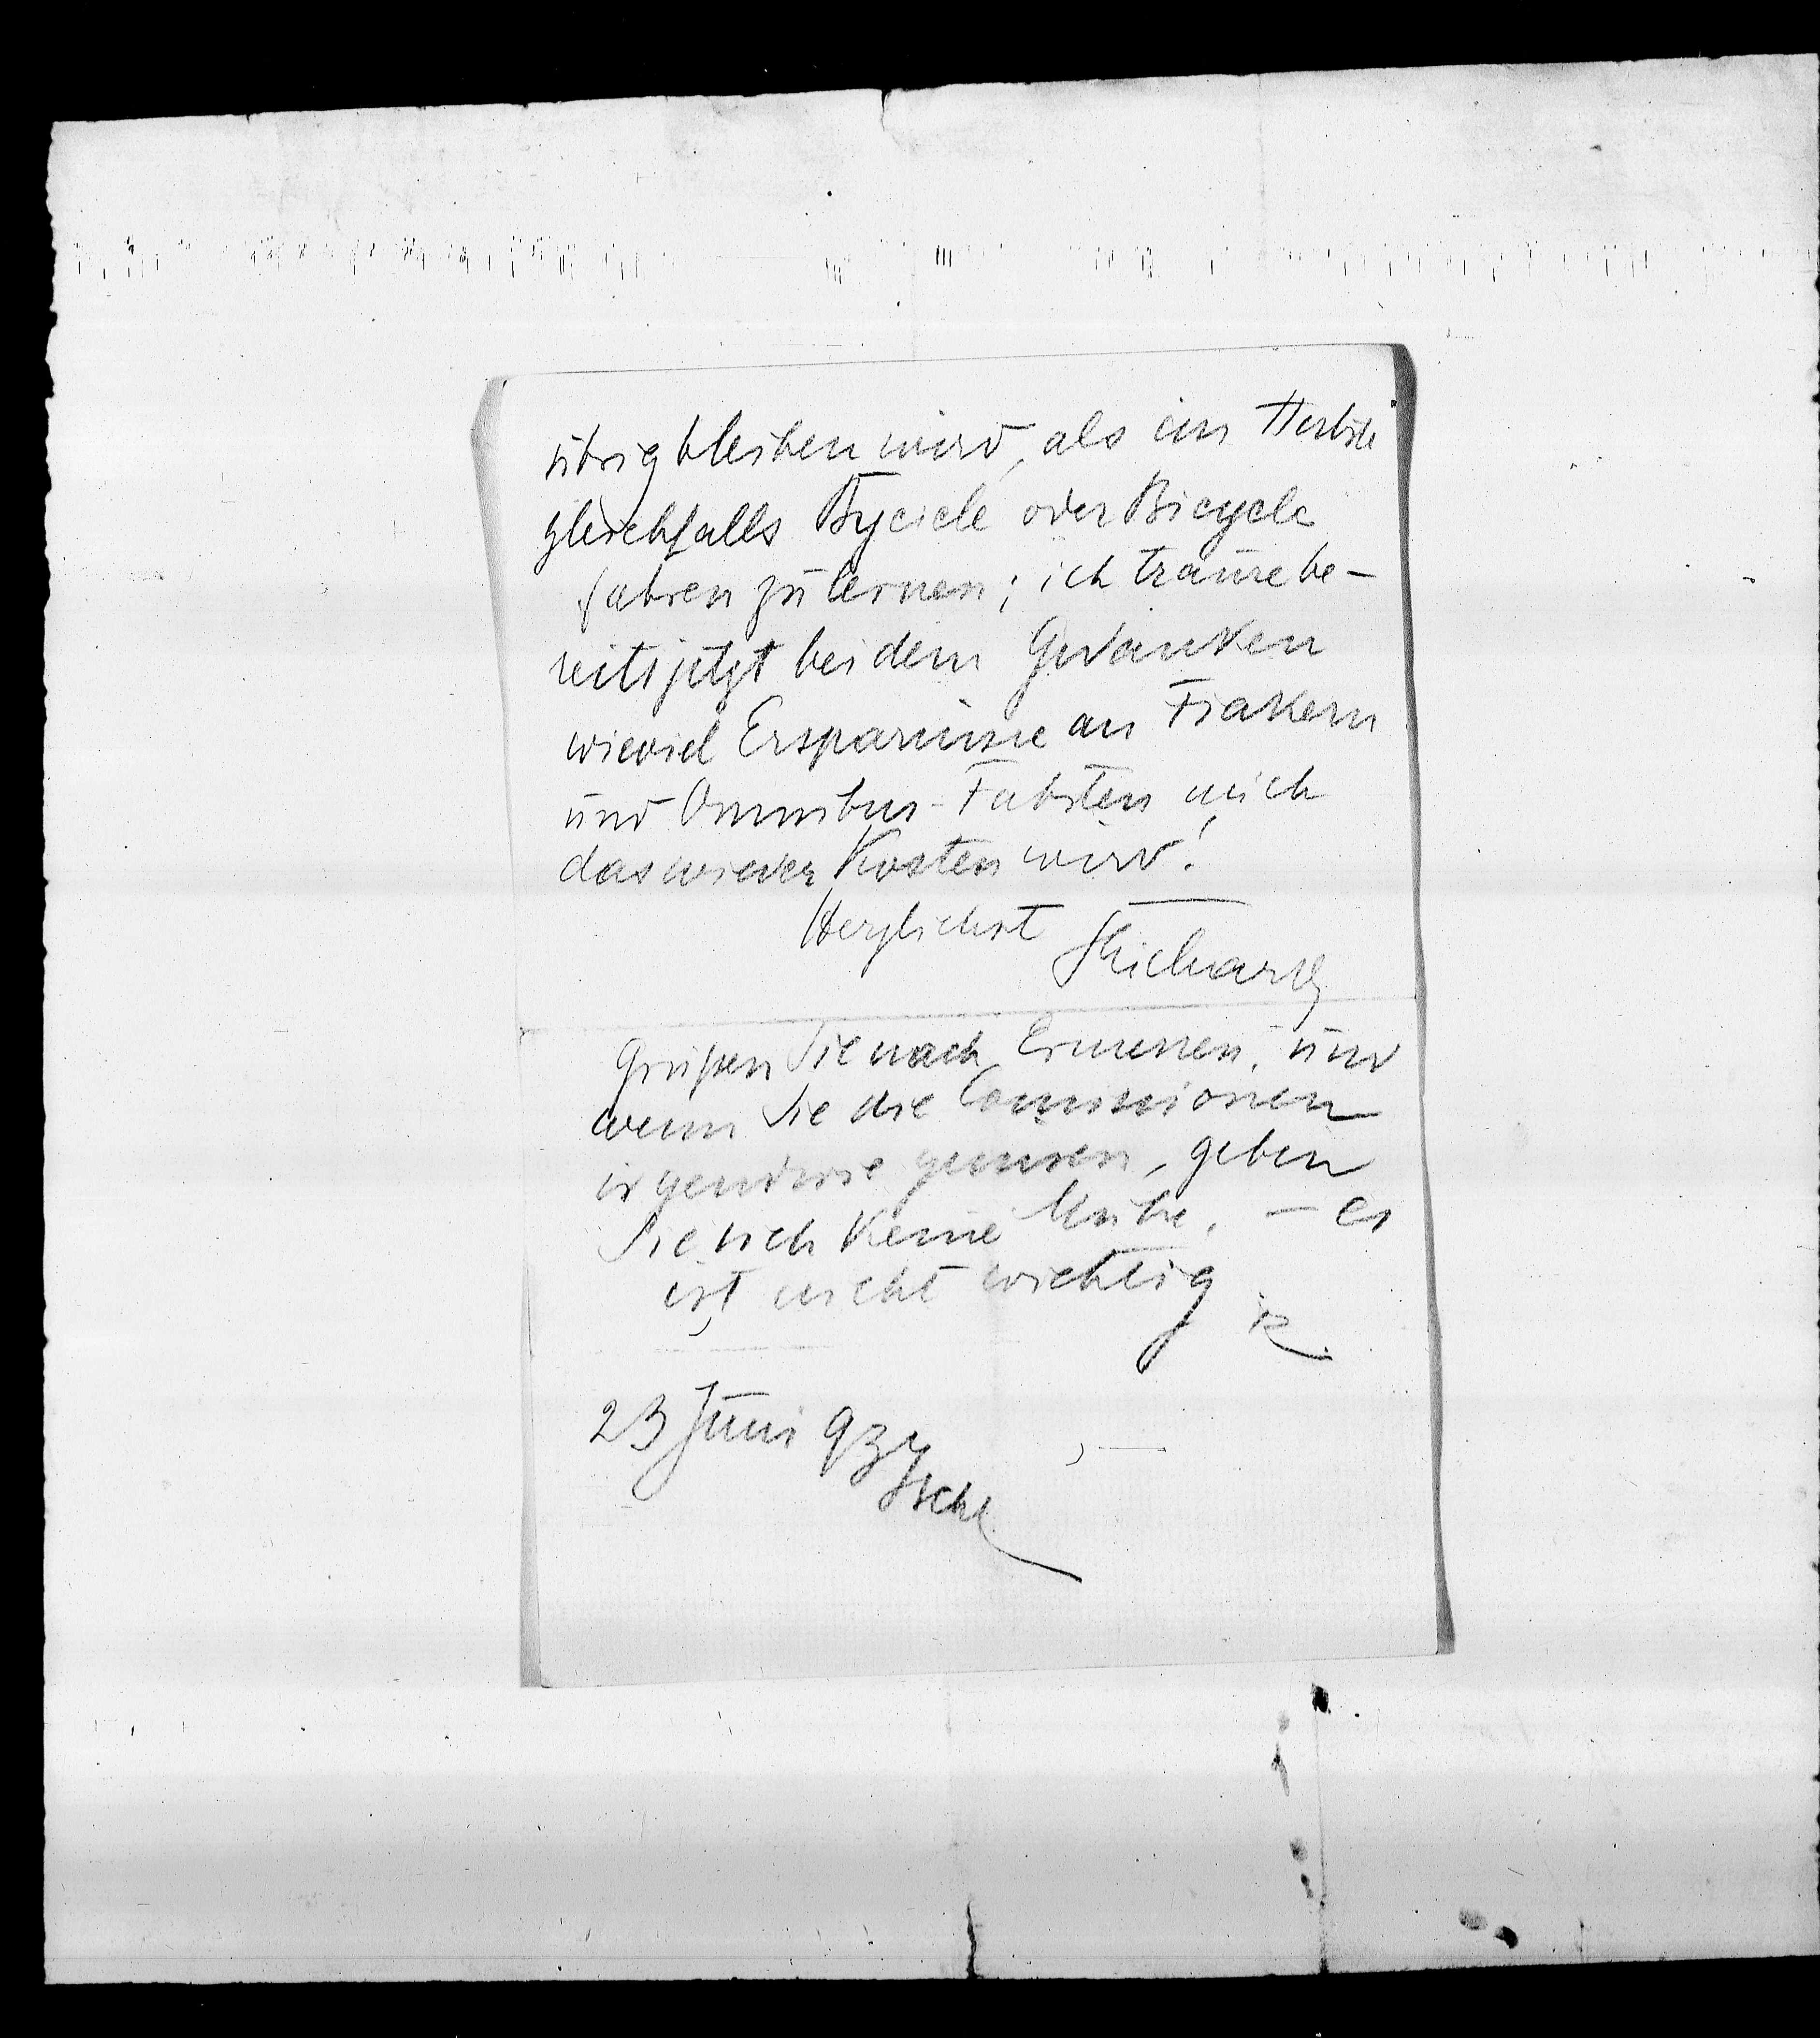 übrig bleiben wird, als im Herbste
gleichfalls Bycicle oder Bicycle
fahren zu lernen; ich traure be-
reits jetzt bei dem Gedanken
wieviel Ersparnisse an Fiakern
und Omnibus-Fahrten mich
das wieder kosten wird!
Herzlichst Richard
Grüßen Sie nach Ermessen, und
wenn Sie die Comissionen
irgendwie genieren, geben
Sie sich keine Mühe, – es
ist nicht wichtig
R
23 Juni 93
Ischl